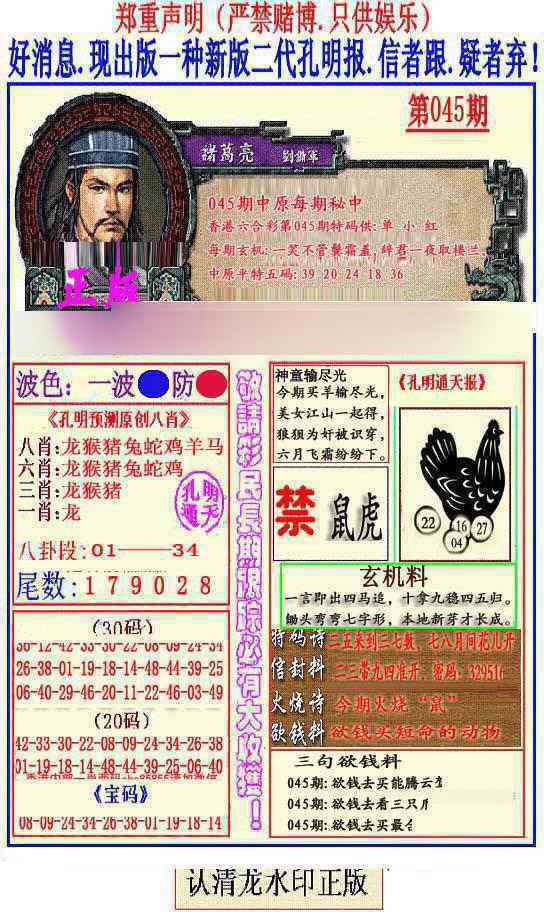 郑重声明（严禁赌博.只供娱乐）
好消息.现出版一种新版二代孔明报.信者跟.疑者弃!
第045期
諸葛亮
045期中原每期秘中
香港六合彩第045期特码供:单 小 红
每期玄机:一笑不管鬓霜盖,辞君一夜取楼兰.
中原平特五码:39 20 24 18 36
正版
波色: 一波 防
《孔明预测原创八肖》
八肖:龙猴猪兔蛇鸡羊马
六肖:龙猴猪兔蛇鸡
三肖:龙猴猪
一肖:龙
孔明
通天
八卦段:01——34
尾数:179028
(30码)
38-12-42-33-30-22-08-09-24-34
26-38-01-19-18-14-48-44-39-25
06-40-29-46-20-11-22-46-03-49
(20码)
42-33-30-22-08-09-24-34-26-38
01-19-18-14-48-44-39-25-06-40
《宝码》
08-09-24-34-26-38-01-19-18-14
敬請彩民長期跟踪必有大收獲！
神童输尽光
今期买羊输尽光，
美女江山一起得，
狼狈为奸被识穿，
六月飞霜纷纷下。
禁 鼠虎
《孔明通天报》
22
16
27
04
玄机料
一言即出四马追，十拿九稳四五归。
锄头弯弯七字形，本地新芽才长成。
特码诗 三五来到三七数，七八月同花儿开
信封料 二二带九四准开，密码：329516
火烧诗 今期火烧“鼠”
欲钱料 欲钱买短命的动物
三句欲钱料
045期:欲钱去买能腾云
045期:欲钱去看三只
045期:欲钱去买最
认清龙水印正版